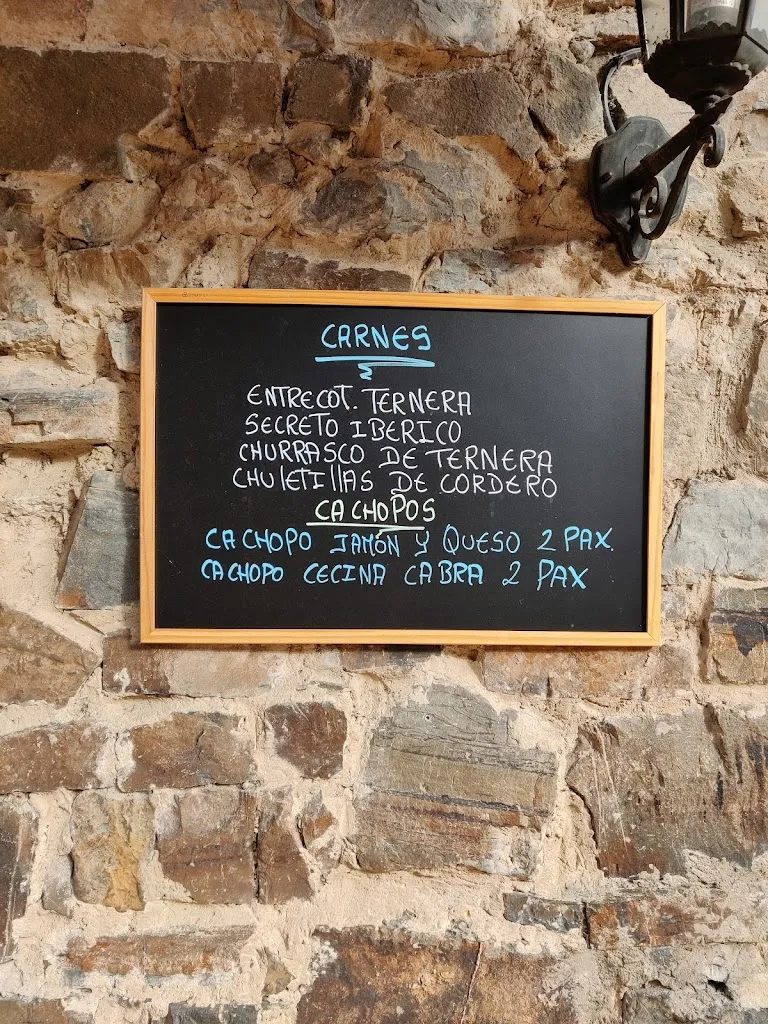 CARNES
ENTRECOT. TERNERA
SECRETO IBERICO
CHURRASCO DE TERNERA
CHULETILLAS DE CORDERO
CACHOPOS
CACHOPO JAMÓN Y QUESO 2 PAX.
CACHOPO CECINA CABRA 2 PAX